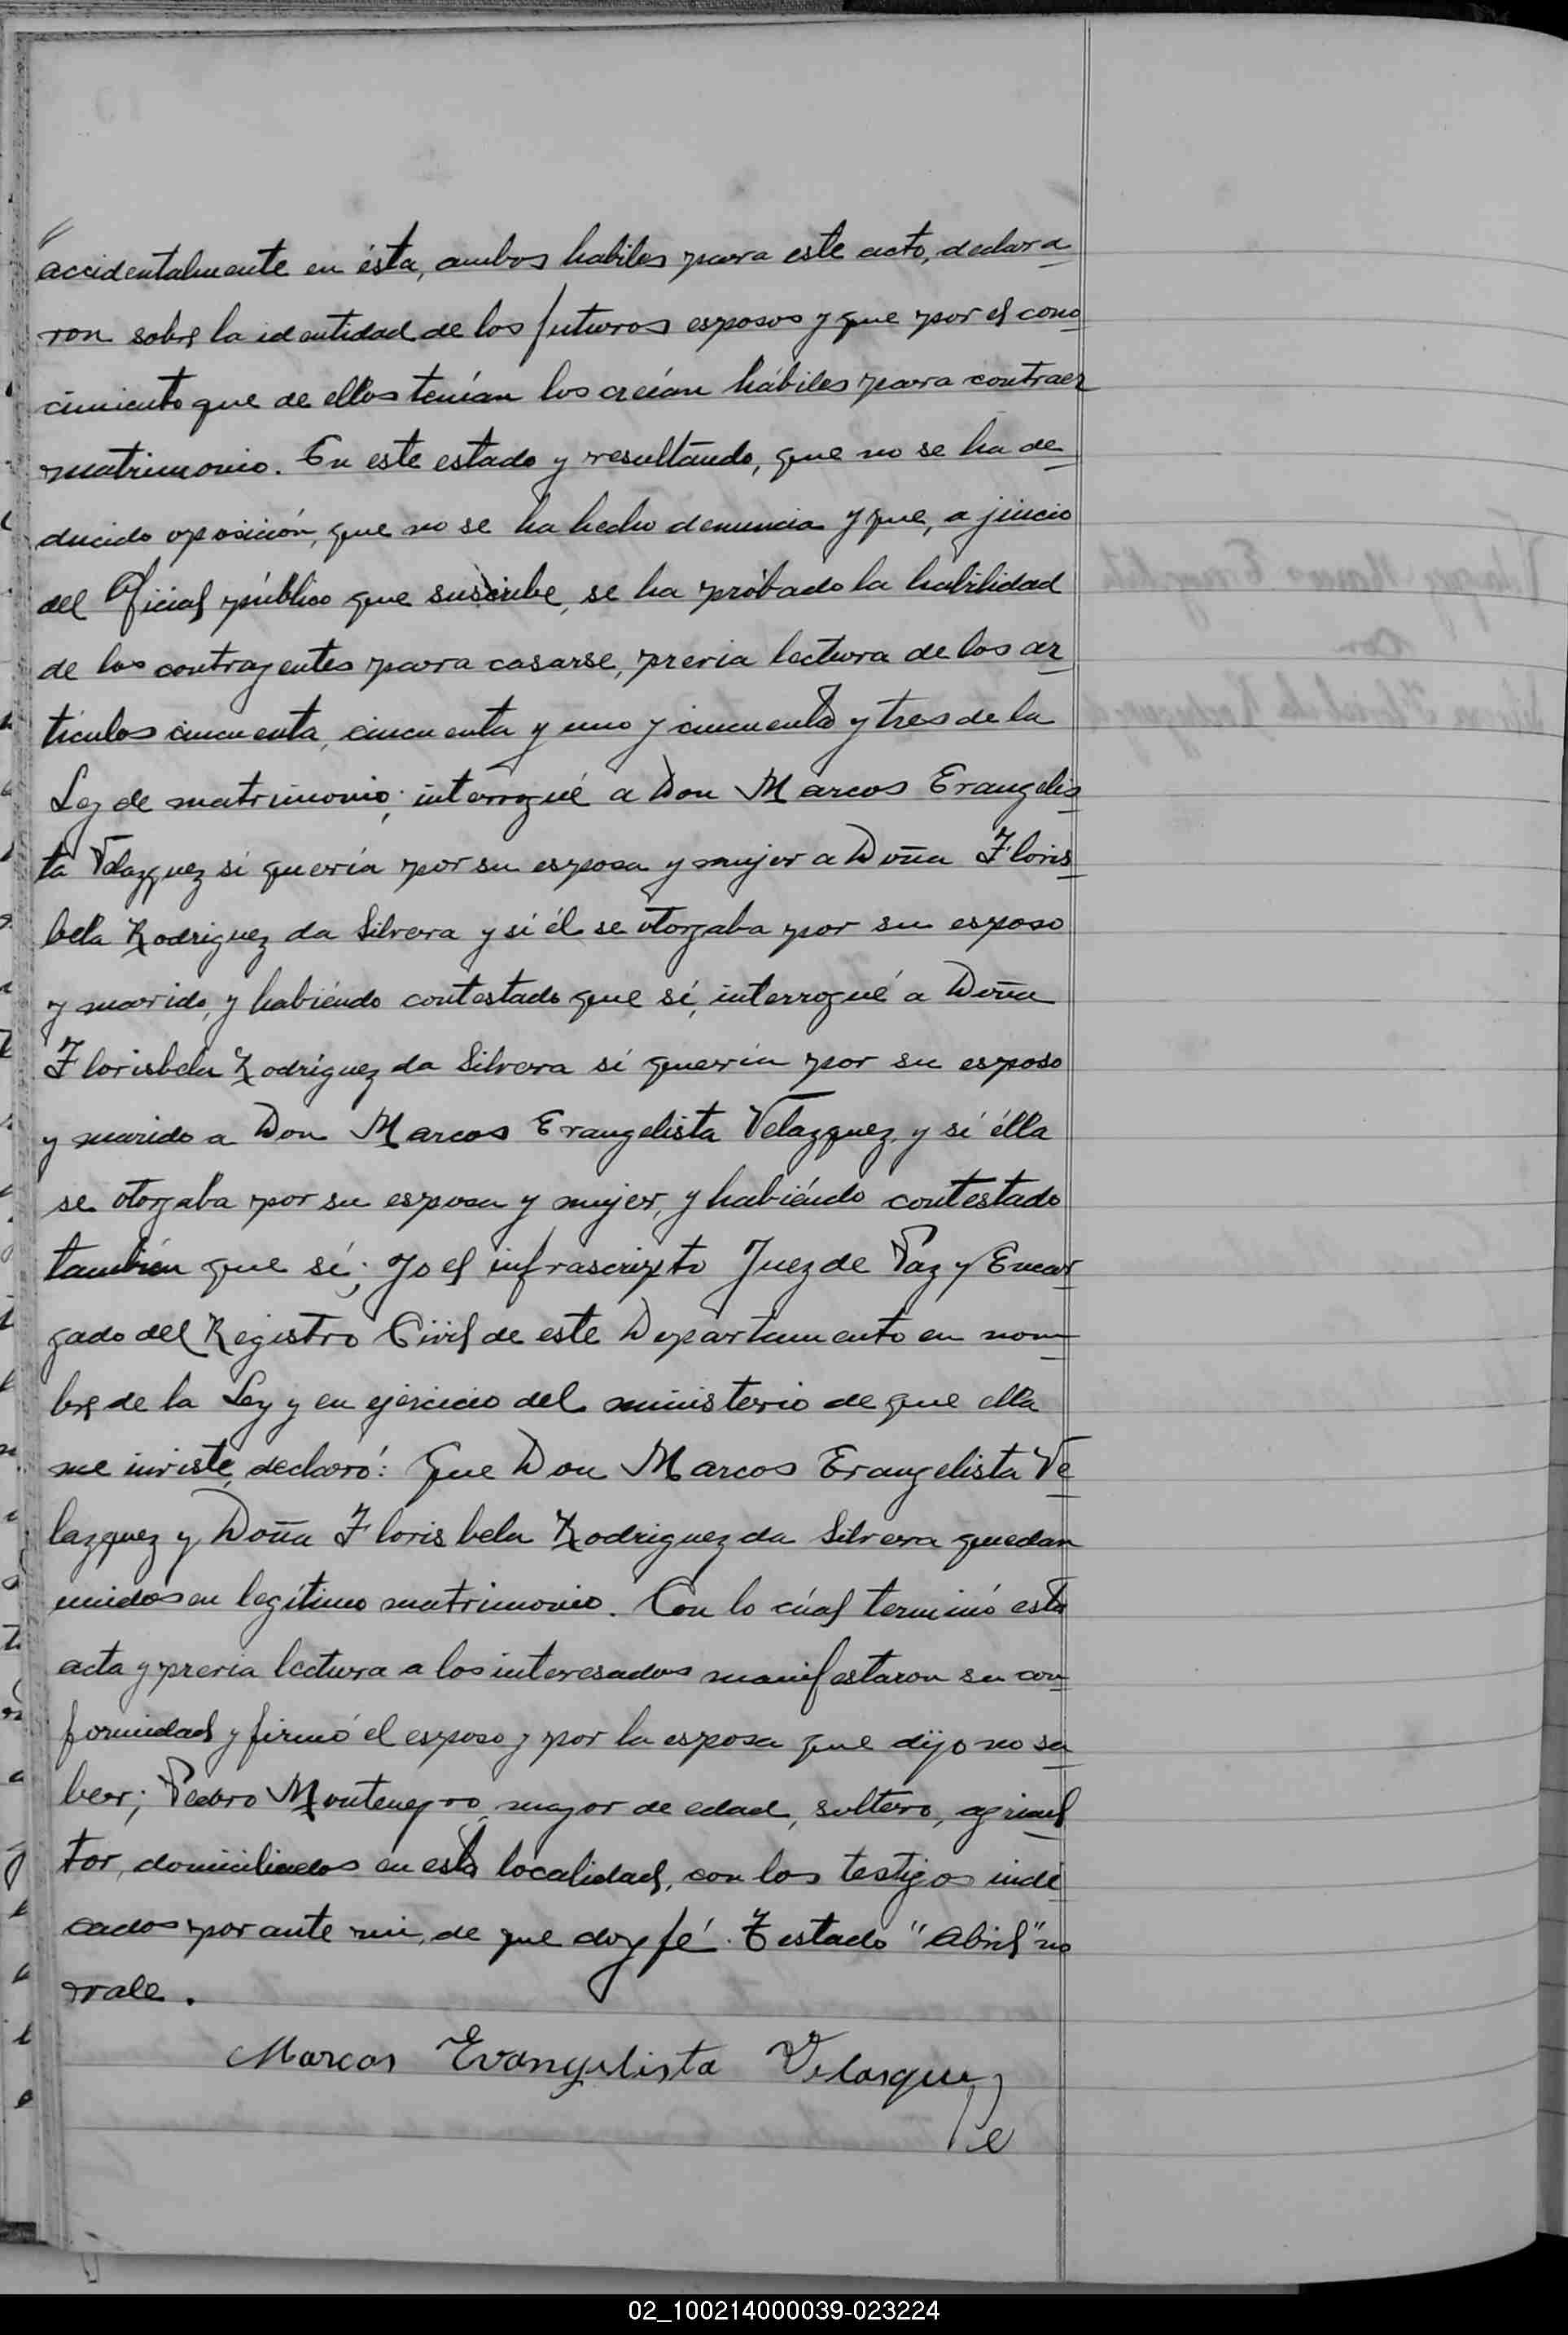 accidentalmente en ésta, ambos habiles para este acto, declara
ron sobre la identidad de los futuros esposos y que por el cono
cimiento que de ellos tenían los creían hábiles para contraer
matrimonio. En este estado y resultando, que no se ha de
ducido oposición, que no se ha hecho denuncia y que, a juicio
del Oficial público que suscribe, se ha probado la habilidad
de los contrayentes para casarse, previa lectura de los ar
tículos cincuenta, cincuenta y uno y cincuenta y tres de la
Ley de matrimonio; interrogué a Don Marcos Evangelis
ta Velazquez si quería por su esposa y mujer a Doña Floris
bela Rodriguez da Silvera y si él se otorgaba por su esposo
y marido, y habiéndo contestado que sí, interrogué a Doña
Florisbela Rodríguez da Silvera si quería por su esposo
y marido a Don Marcos Evangelista Velazquez y si élla
se otorgaba por su esposa y mujer, y habiéndo contestado
también que sí; Yo el infrascripto Juez de Paz y Encar
gado del Registro Civil de este Departamento en nom
bre de la Ley y en ejercicio del ministerio de que ella
me inviste, declaró: Que Don Marcos Evangelista Ve
lazquez y Doña Florisbela Rodriguez da Silvera quedan
unidos en legítimo matrimonio. Con lo cúal terminó esta
acta y previa lectura a los interesados manifestaron su con
formidad y firmó el esposo y por la esposa que dijo no sa
ber; Pedro Montenegro, mayor de edad, soltero, agricul
tor, domiciliados en esta localidad, con los testigos indi
cados por ante mi, de que doy fé. Testado "Abril" no
vale.
Marcos Evangelista Velasquez
Pe
02_100214000039-023224